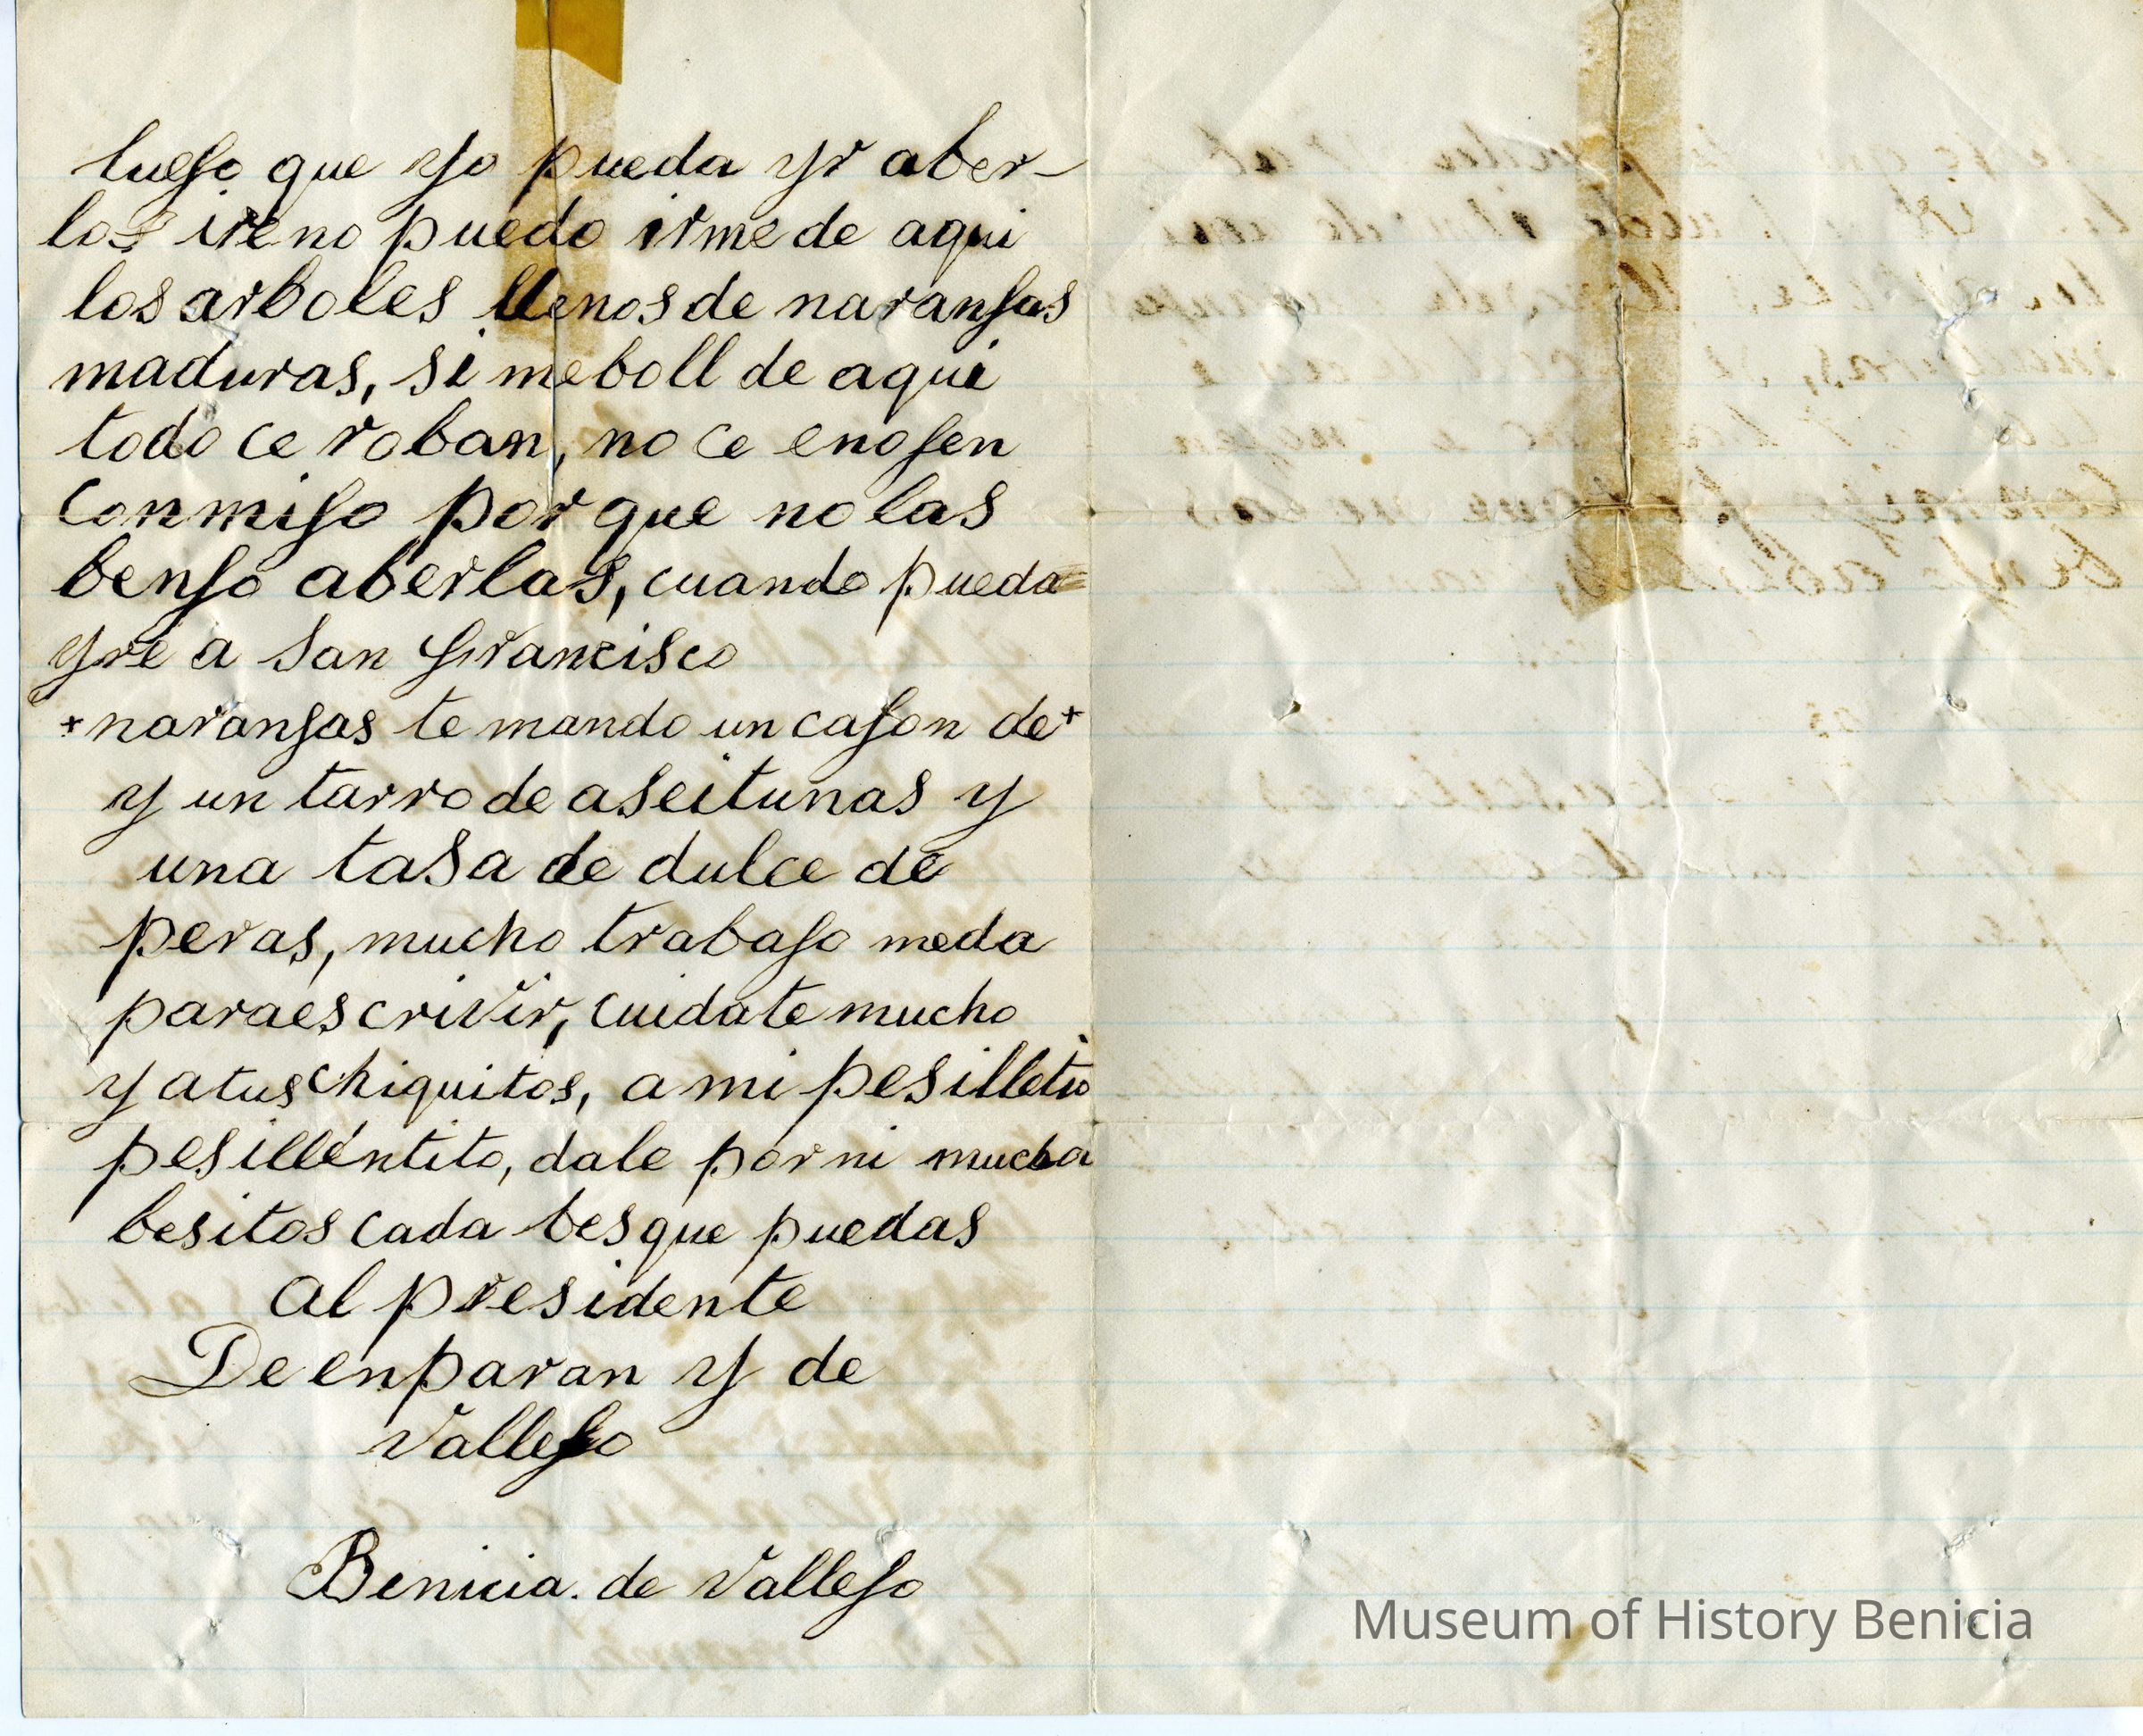 luego que yo pueda yr aber-
los ire no puedo irme de aqui
los arboles llenos de naranjas
maduras, si me boll de aqui
todo ce roban, no ce enojen
conmigo por que no las
bengo aberlas, cuando pueda
yre a San Francisco
+ naranjas te mando un cajon de +
y un tarro de aseitunas y
una tasa de dulce de
peras, mucho trabajo me da
para escrivir, cuidate mucho
y a tus chiquitos, a mi pesilleto
pesillentito, dale por mi mucha
besitos cada bes que puedas
al presidente
De enparan y de
Vallejo
Benicia. de Vallejo
Museum of History Benicia